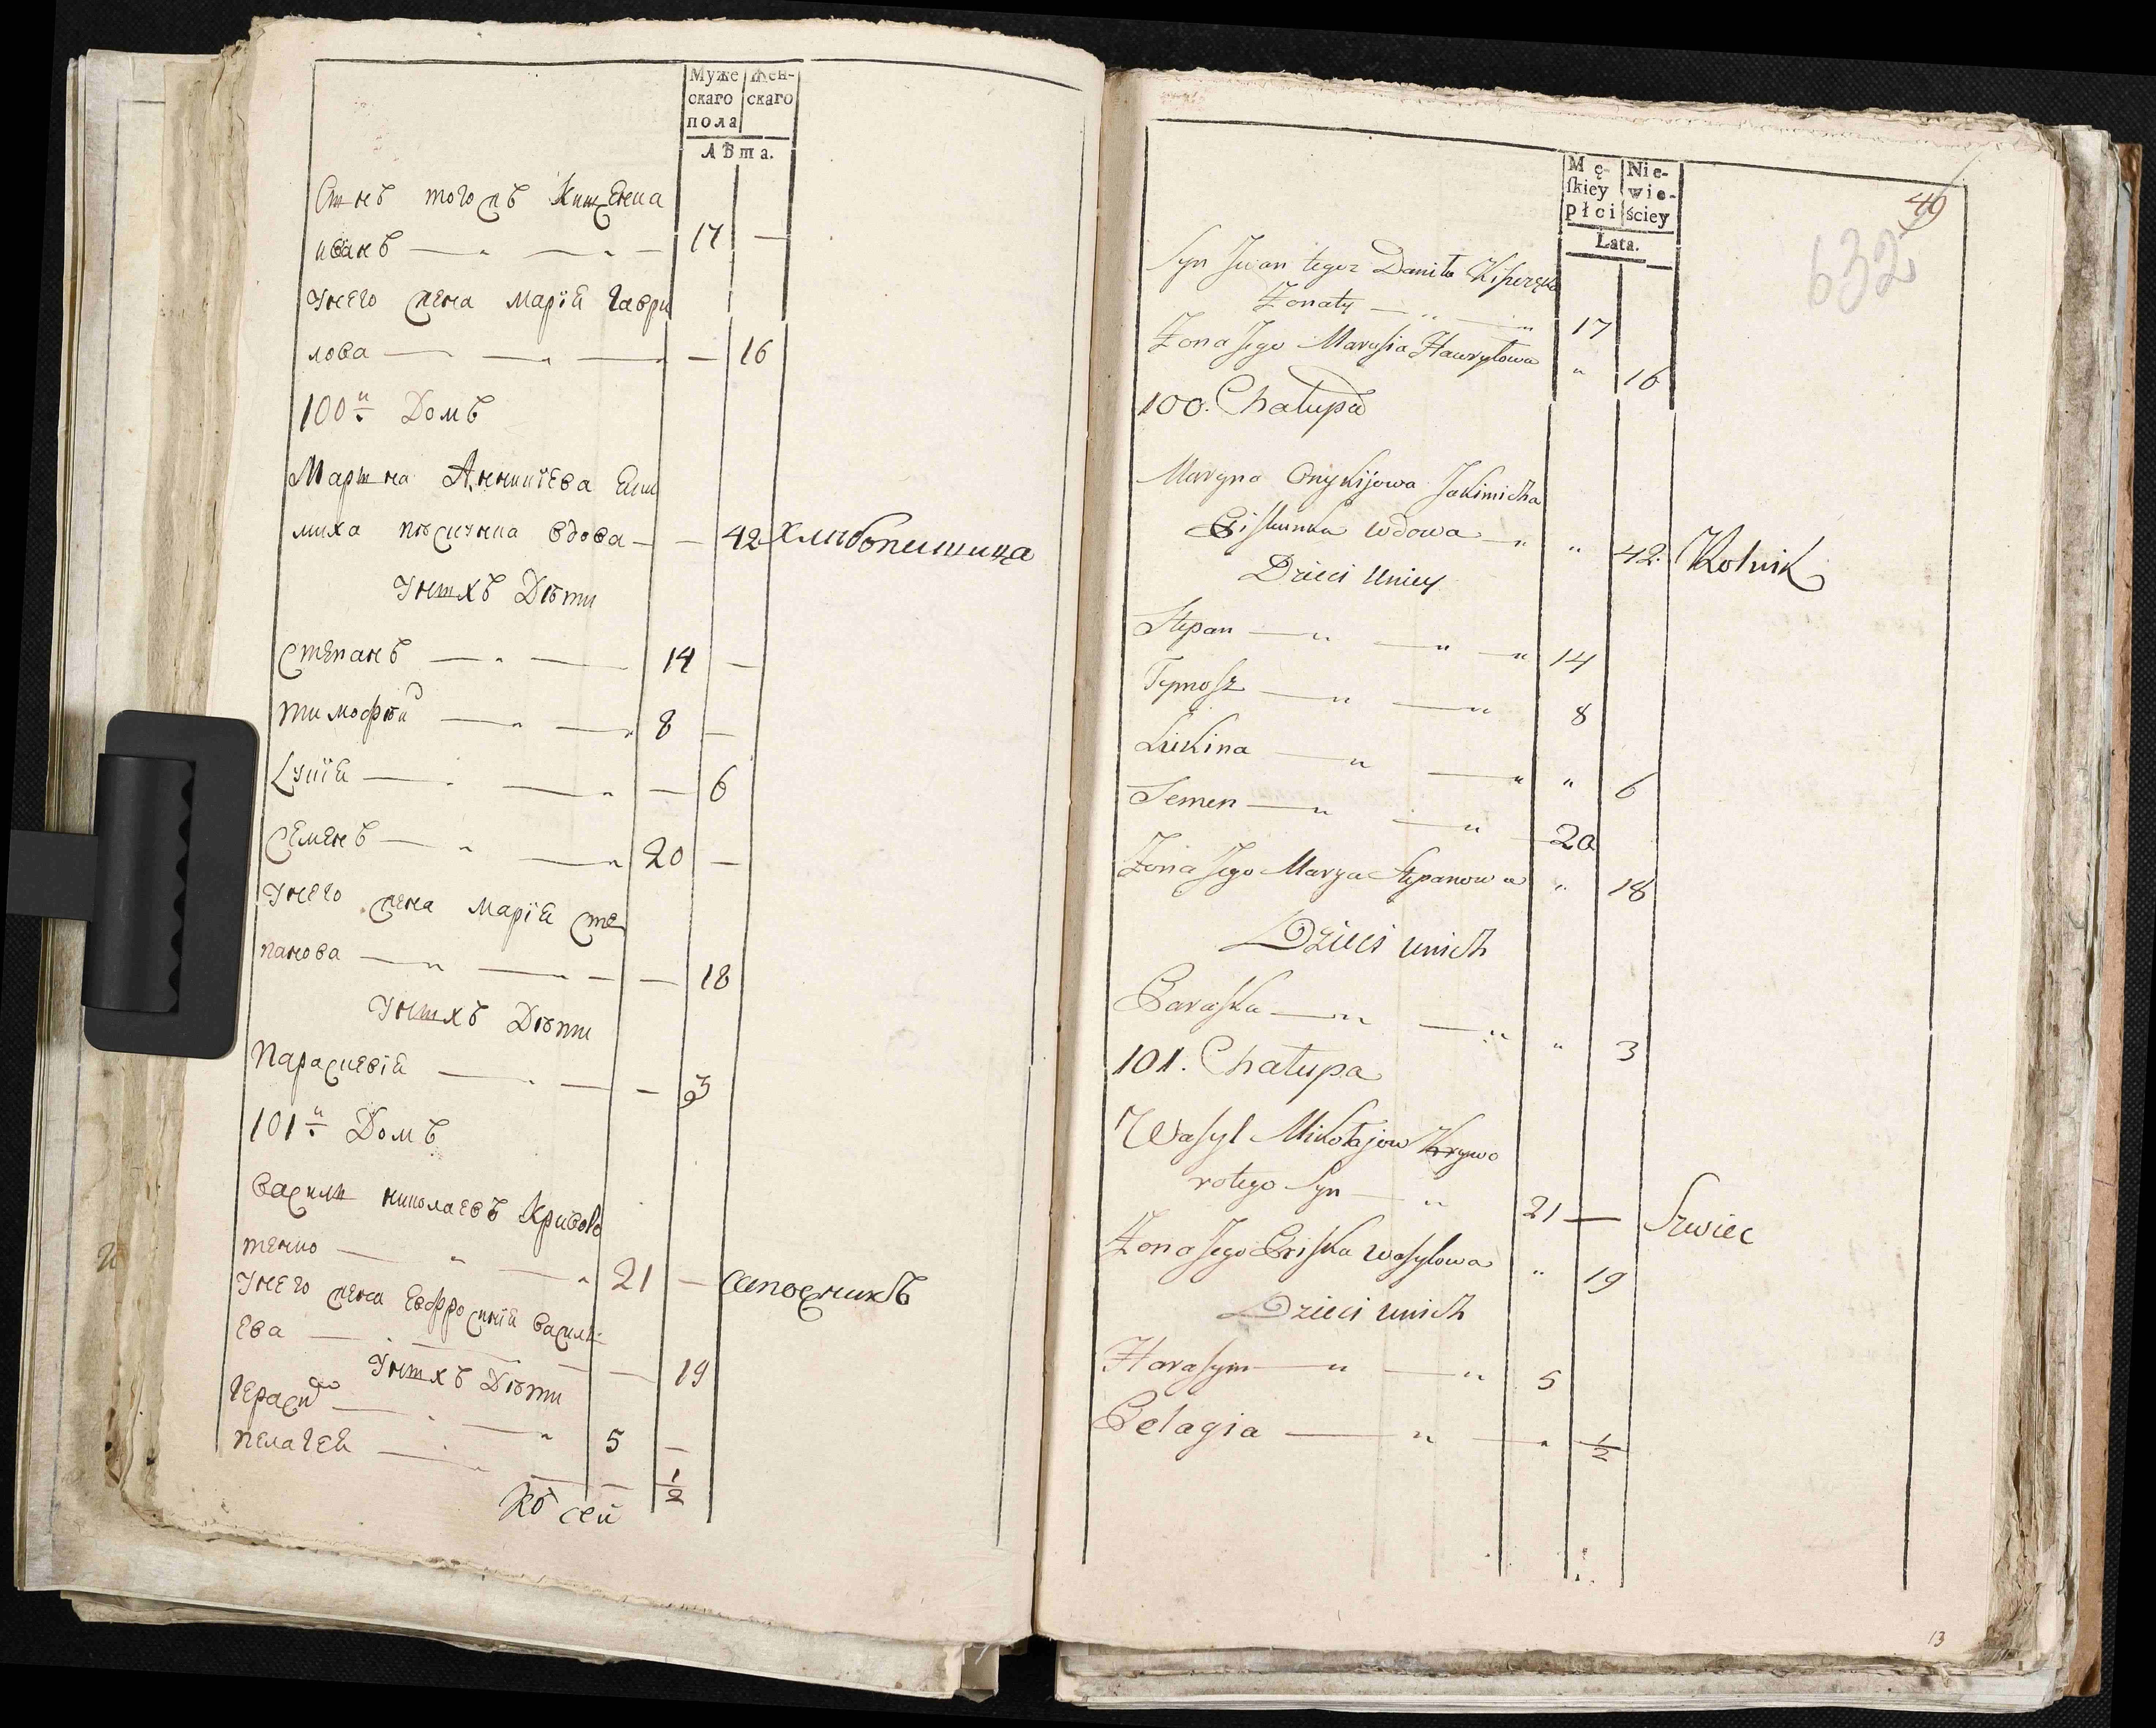 Муже Жен-
скаго скаго
пола
Лѣта.
Сынъ тогожъ Кищенка
иванъ 17 —
Унего жена Марїя Гаври
лова — 16
100й Домъ
Марына Аникїева Еки
миха пѣскунка вдова — 42 хлибопешица
Уныхъ Дѣти
Степанъ 14 —
тимофѣй 8 —
Lукїя — 6
Семенъ 20 —
Унего жена Марїя Сте
панова — 18
Уныхъ Дѣти
Параскевїя — 3
101й Домъ
Василы николаевъ Криворо
тенко 21 — Сапожникъ
Унего жена Евфросинїя Василь
ева — 19
Уныхъ Дѣти
Герасим 5 —
пелагея — 1/2
Къ сей
Mę- Nie-
ſkiey wie-
płci ściey
Lata.
49
632
Syn Jwan tegoz Daniła Kiſzczęka
Zonaty 17
Zona Jego Marusia Hawryłowa " 16
100. Chałupa
Maryna Onykijowa Jakimicha
Piſkunka wdowa " 42. Rolnik
Dzieci Uniey
Stepan 14
Tymosz 8
Łukina " 6
Semen 20
Zona Jego Marya Stepanowa " 18
Dzieci unich
Paraſka " 3
101. Chałupa
Wasyl Mikołajow Krywo
rotego Syn 21 — Szwiec
Zona Jego Priſka Wasylowa " 19
Dzieci unich
Harasym 5
Pelagia 1/2
13